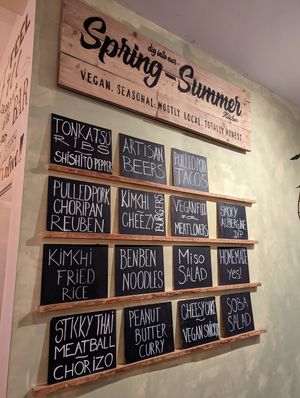 dig into our
Spring-Summer
Kitchen
VEGAN, SEASONAL, MOSTLY LOCAL, TOTALLY HONEST
TONKATSU
RIBS
SHISHITO PEPPER
ARTISAN
BEERS
PULLED PORK
TACOS
PULLED PORK
CHORIPAN
REUBEN
KIMKHI
CHEEZY
BURGERS
VEGAN FOOD
FOR
MEATLOVERS
SMOKY
AUBERGINE
DIP
KIMKHI
FRIED
RICE
BENBEN
NOODLES
MISO
SALAD
HOMEMADE
yes!
STICKY THAI
MEATBALL
CHORIZO
PEANUT
BUTTER
CURRY
CHEESYCAKE
VEGAN
SOBA
SALAD
FEEL
BAR